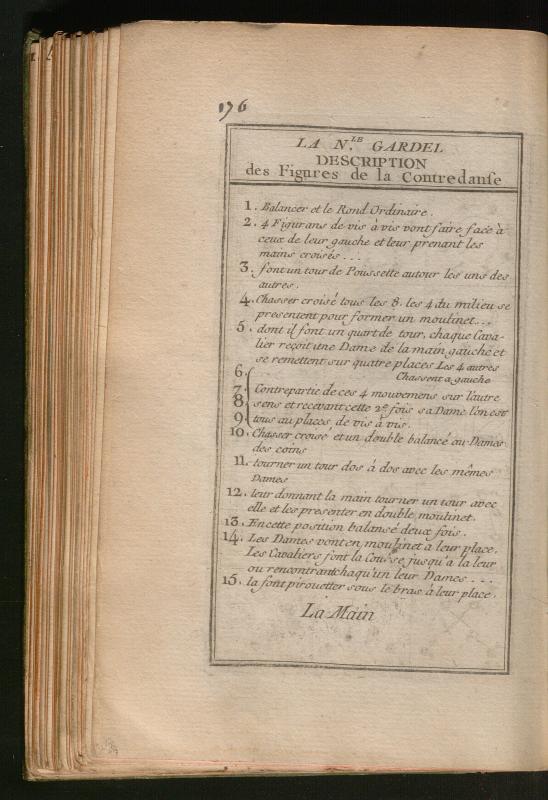 176
LA N.LE GARDEL
DESCRIPTION
des Figures de la Contredanse
1. Balancer et le Rond Ordinaire.
2. 4 Figurans de vis à vis vont faire face à
ceux de leur gauche et leur prenant les
mains croisés...
3. font un tour de Poussette autour les uns des
autres.
4. Chasser croisé tous les 8. les 4 du milieu se
presentent pour former un moulinet...
5. dont il font un quart de tour, chaque Cava-
lier reçoit une Dame de la main gauche et
se remettent sur quatre places Les 4 autres
6. Chassent a gauche
7. Contrepartie de ces 4 mouvemens sur l'autre
8. sens et recevant cette 2e fois sa Dame l'on est
9. tous au places, de vis à vis.
10. Chasser croisé et un double balancé au Dames
des coins
11. tourner un tour dos á dos avec les mêmes
Dames
12. leur donnant la main tourner un tour avec
elle et les presenter en double moulinet.
13. En cette position balansé deux fois.
14. Les Dames vont en moulinet a leur place.
Les Cavaliers font la Course jusqu'à la leur
ou rencontrant chaqu'un leur Dames...
15. la font pirouetter sous le bras à leur place.
La Main